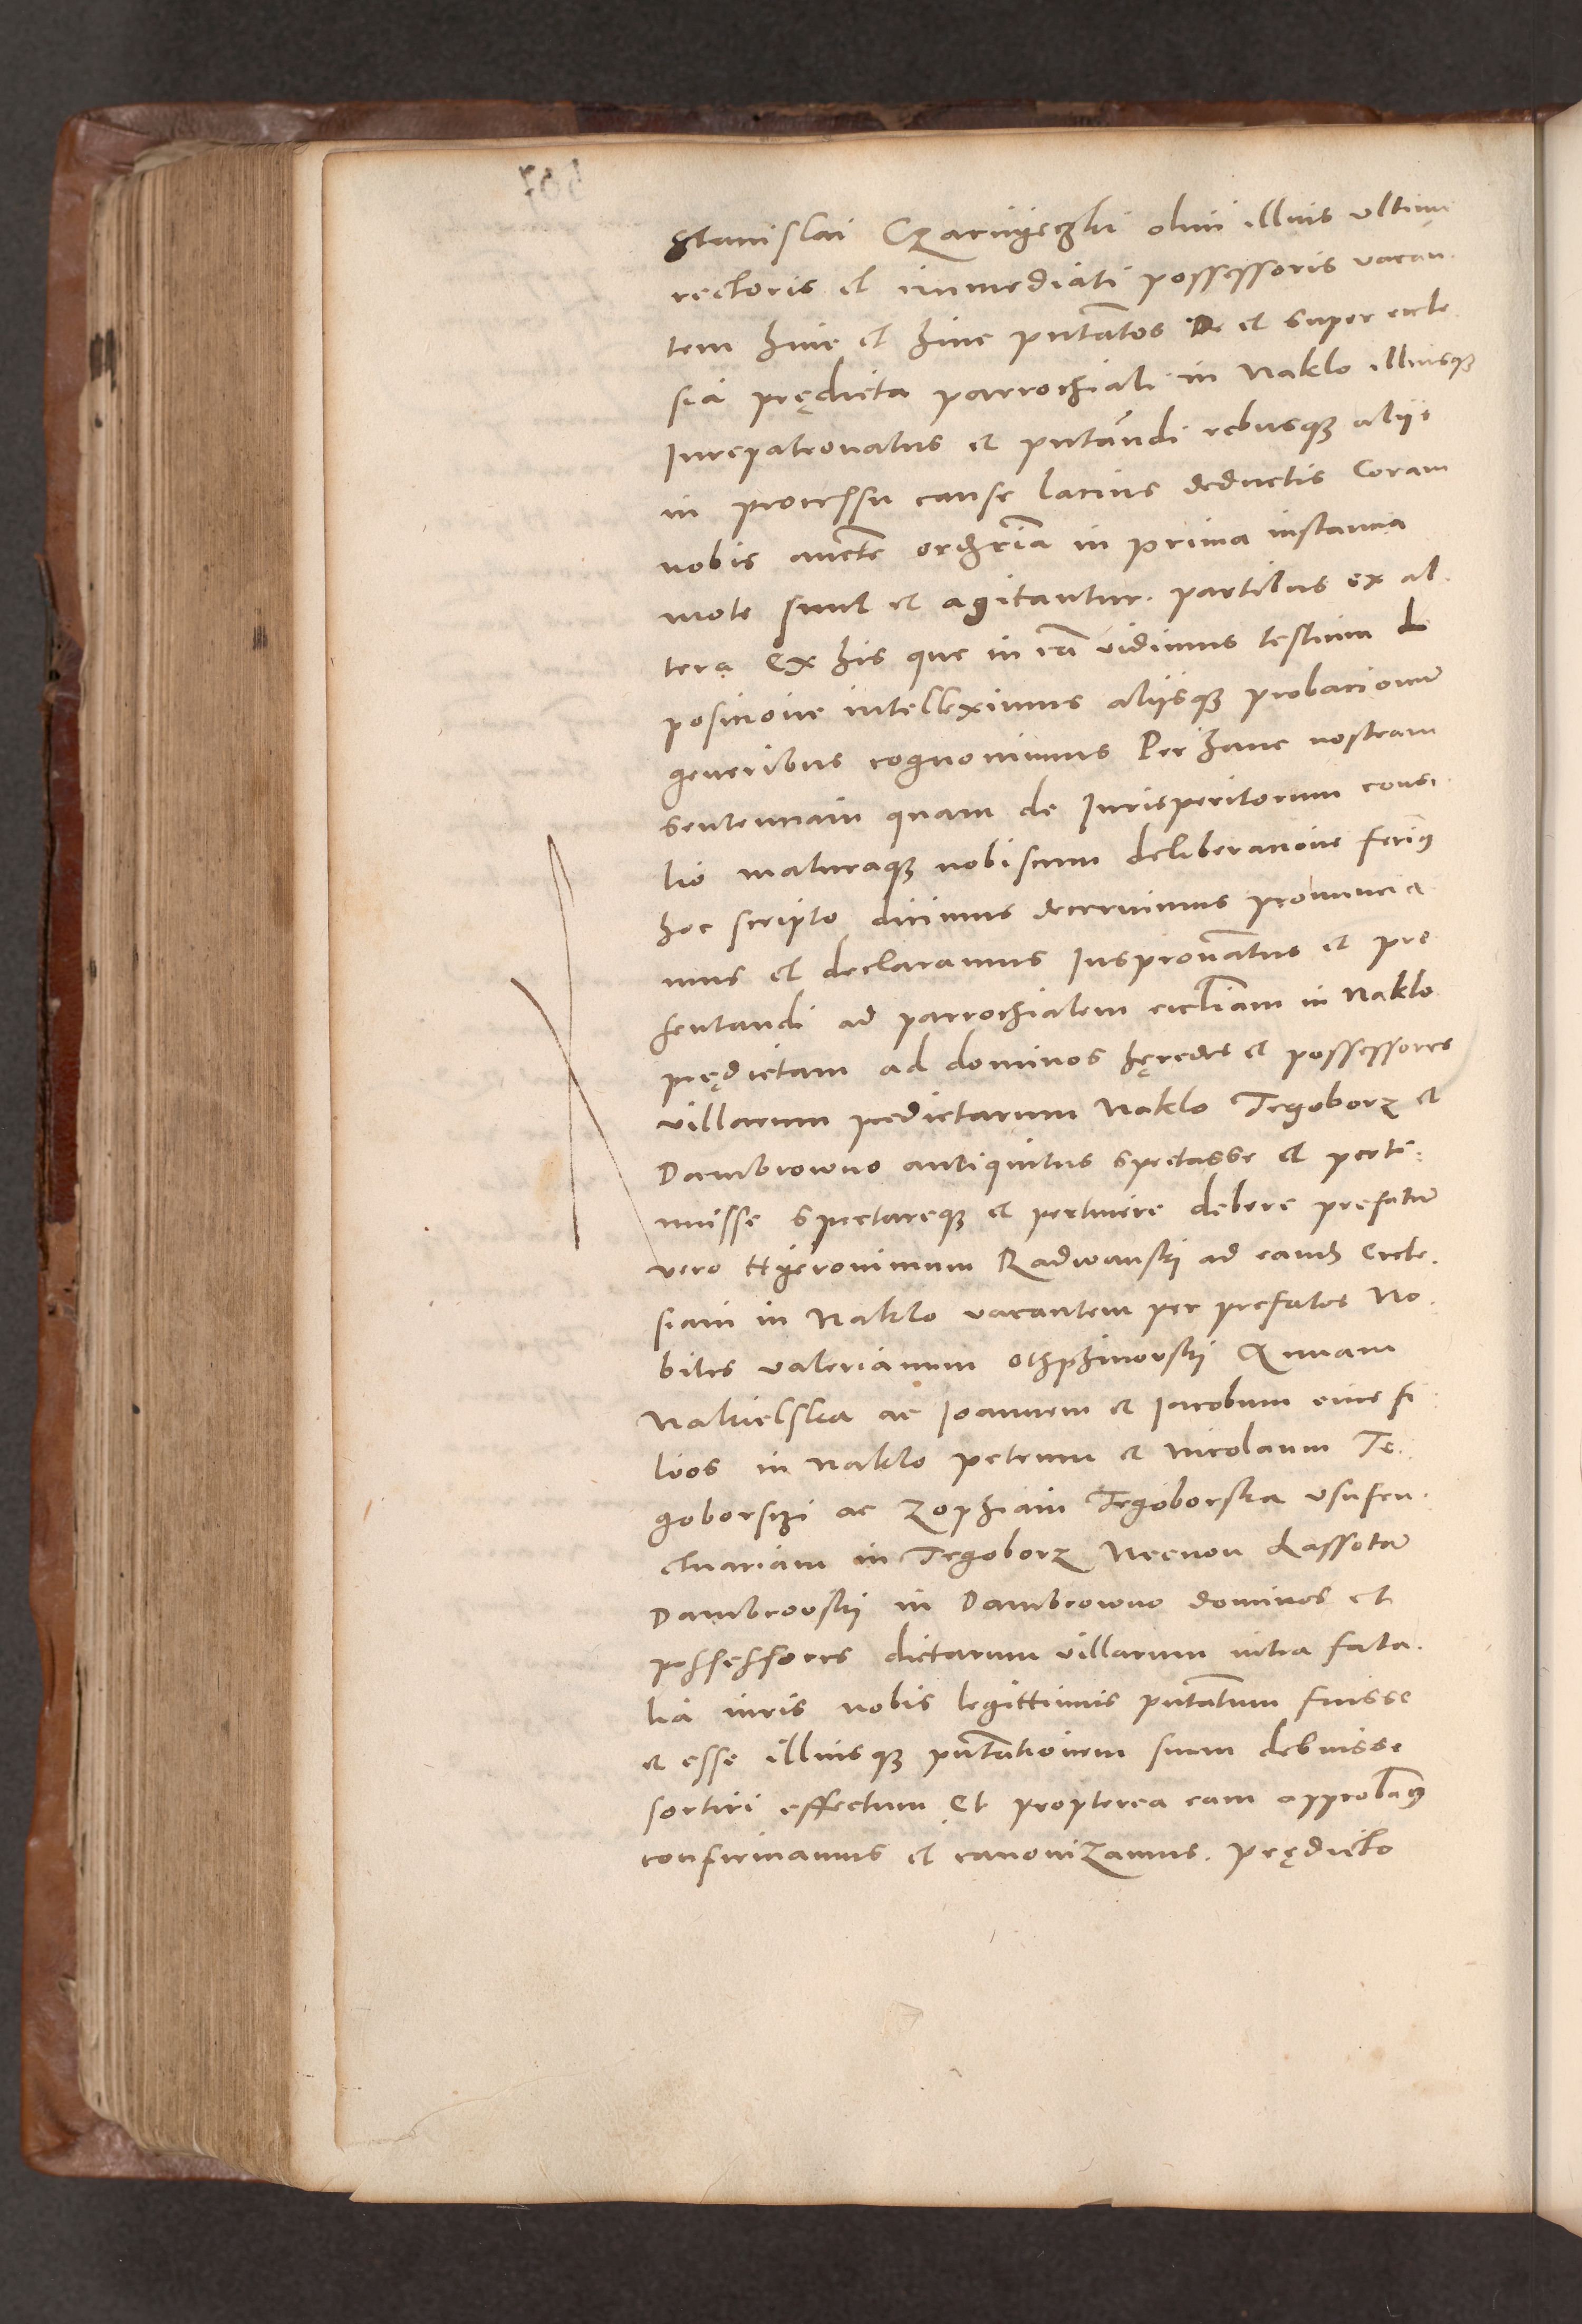 Stanislai Czarnyeczki olim illius ultimi
rectoris et immediati possessoris vacan
tem hinc et hinc pn̄tatos De et super eccle
sia prędicta parrochiali in Naklo illiusqꝫ
Jurepatronatus et pn̄tandi rebusqꝫ aliis
in processu cause latius deductis Coram
nobis aucte ordria in prima instancia
mote sunt et agitantur. partibus ex al
tera Ex his que in ca vidimus testium d
posicione intelleximus aliisqꝫ probacionū
generibus cognovimus Per hanc nostram
sentenciam quam de Jurisperitorum consi
lio maturaqꝫ nobiscum deliberacione ferimꝰ
hoc scripto dicimus decernimus pronuncia
mus et declaramus Juspronatus et pre
sentandi ad parrochialem eccliam in Naklo
prędictam ad dominos hęredes et possessores
villarum predictarum Naklo Tegoborz et
Dambrowno antiquitus spectasse et perti
nuisse spectareqꝫ et pertinere debere prefatū
vero Hyeronimum Radwanski ad eandꝫ Eccle
siam in Naklo vacantem per prefatos No
biles Valerianum Othphinowski Annam
Nakielska ac Joannem et Jacobum eius fi
lios in Naklo petrum et Nicolaum Te
goborski ac Zophiam Tegoborska usufru
ctuariam in Tegoborz Necnon Lassotā
Dambrovski in Dambrowno dominos et
possessores dictarum villarum intra fata
lia iuris nobis legittimis pn̄tatum fuisse
et esse illiusqꝫ pn̄tationem suum debuisse
sortiri effectum Et propterea eam approbamꝰ
confirmamus et canonizamus. prędicto